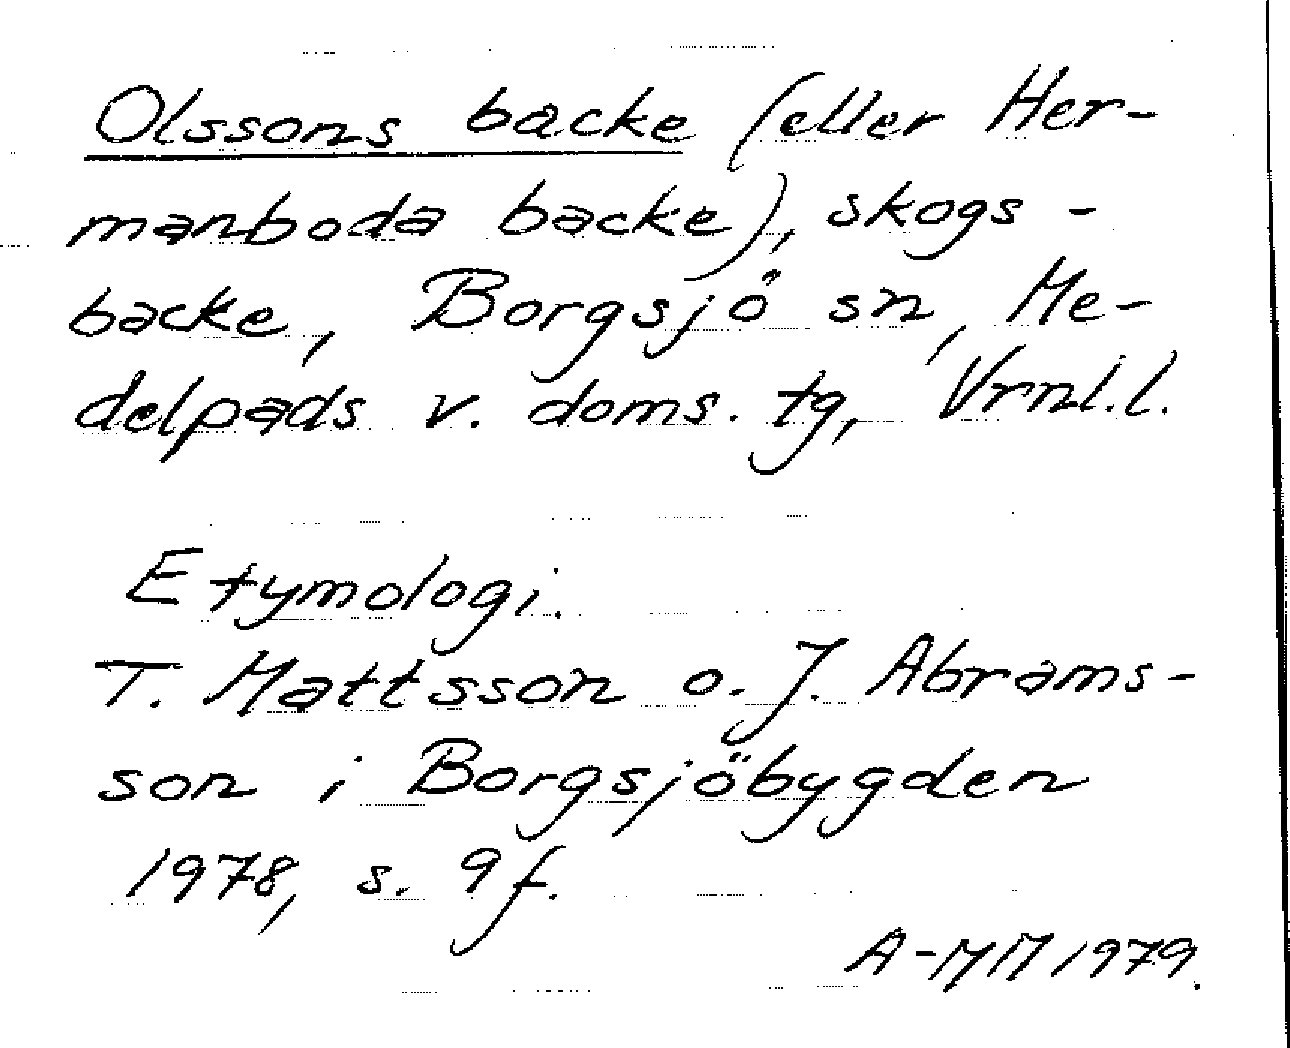 Olssons backe (eller Her-
manboda backe), skogs-
backe, Borgsjö sn, Me-
delpads v. doms. tg, Vrnl.l.
Etymologi.
T. Mattsson o. J. Abrams-
son i Borgsjöbygden
1978, s. 9f.
A-MM 1979.